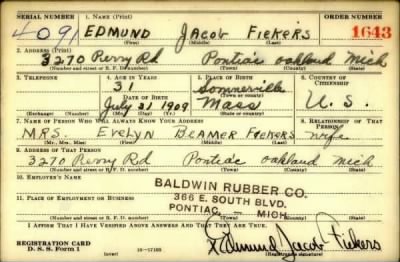 SERIAL NUMBER 1. NAME (Print) ORDER NUMBER
4091 EDMUND JACOB FICKERS 1643
(First) (Middle) (Last)
2. ADDRESS (Print)
3270 Perry Rd Pontiac Oakland Mich
(Number and street or R. F. D. number) (Town) (County) (State)
3. TELEPHONE 4. AGE IN YEARS 5. PLACE OF BIRTH 6. COUNTRY OF CITIZENSHIP
31 Sommerville
DATE OF BIRTH (Town or county)
July 31 1909 Mass U. S.
(Exchange) (Number) (Mo.) (Day) (Yr.) (State or country)
7. NAME OF PERSON WHO WILL ALWAYS KNOW YOUR ADDRESS 8. RELATIONSHIP OF THAT PERSON
MRS. EVELYN BEAMER FICKERS Wife
(Mr., Mrs., Miss) (First) (Middle) (Last)
9. ADDRESS OF THAT PERSON
3270 Perry Rd Pontiac Oakland Mich
(Number and street or R. F. D. number) (Town) (County) (State)
10. EMPLOYER'S NAME
BALDWIN RUBBER CO.
11. PLACE OF EMPLOYMENT OR BUSINESS 366 E. SOUTH BLVD.
PONTIAC, - MICH.
(Number and street or R. F. D. number) (Town) (County) (State)
I AFFIRM THAT I HAVE VERIFIED ABOVE ANSWERS AND THAT THEY ARE TRUE.
REGISTRATION CARD
D. S. S. Form 1 (over) 16-17105 X Edmund Jacob Fickers
(Registrant's signature)